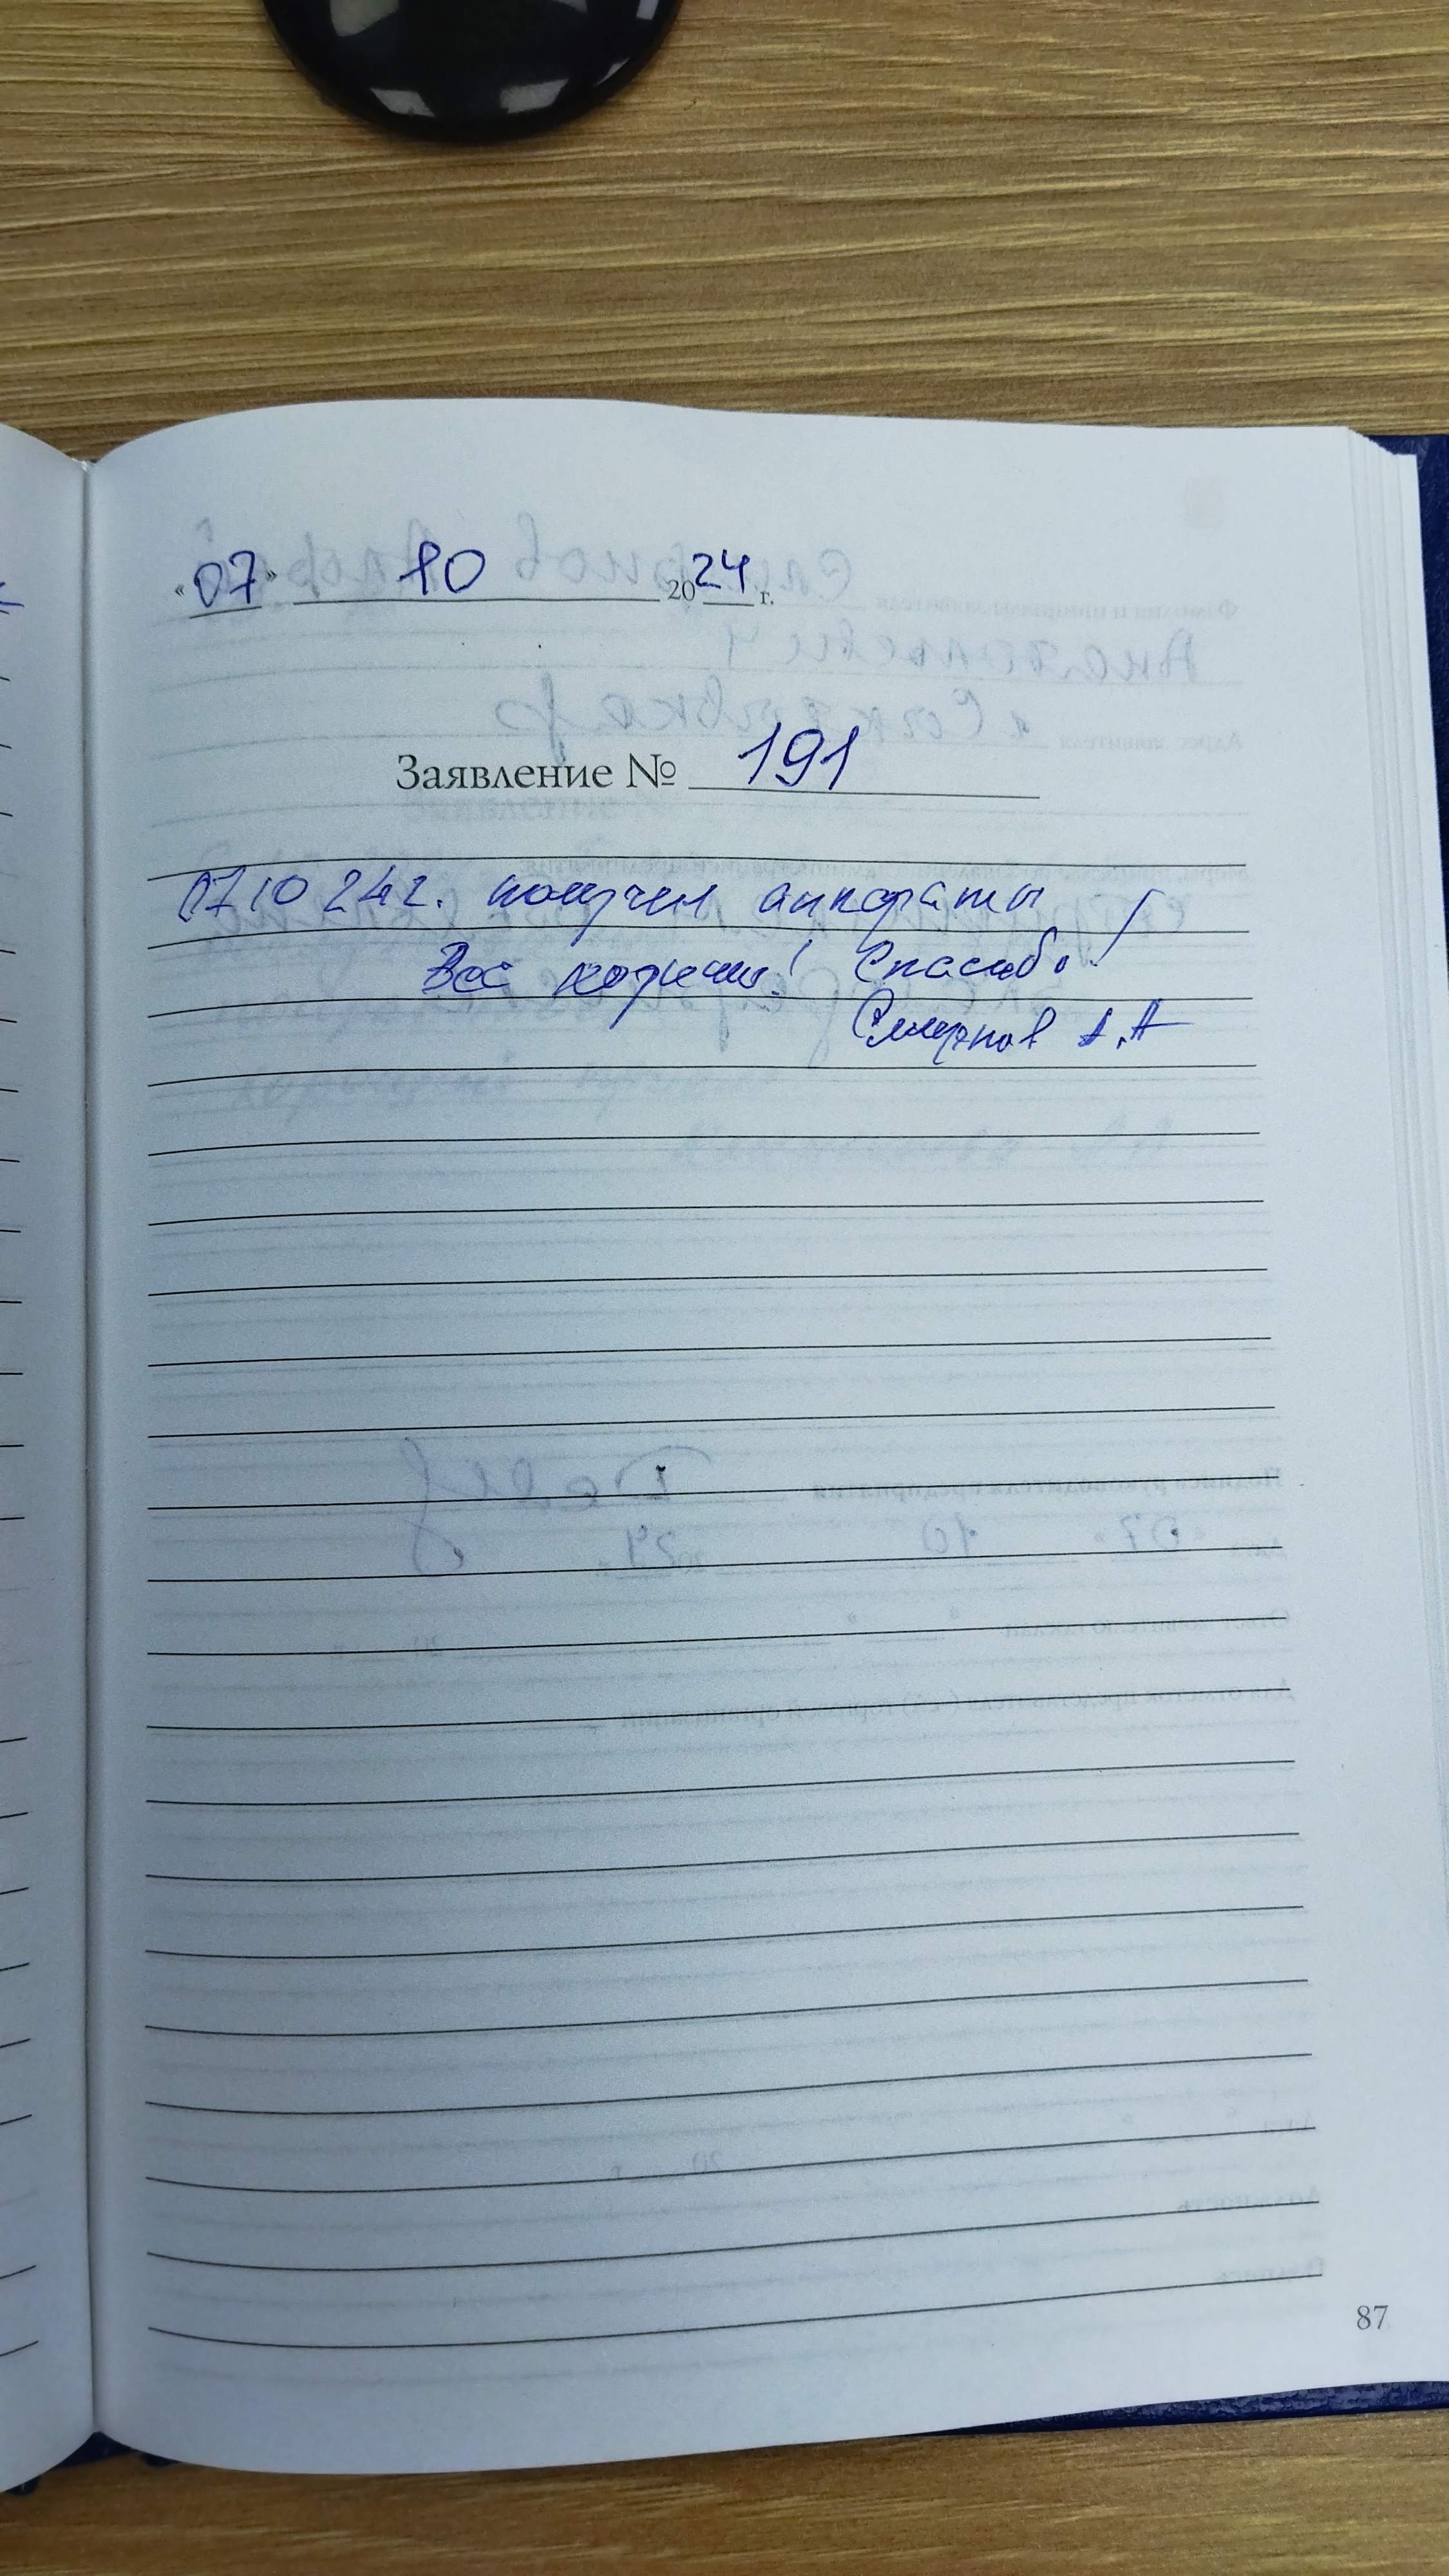 «07» 10 2024 г.
Заявление № 191
07 10 24г. получил аппараты
Все хорошо! Спасибо!
Смирнов А.А
87